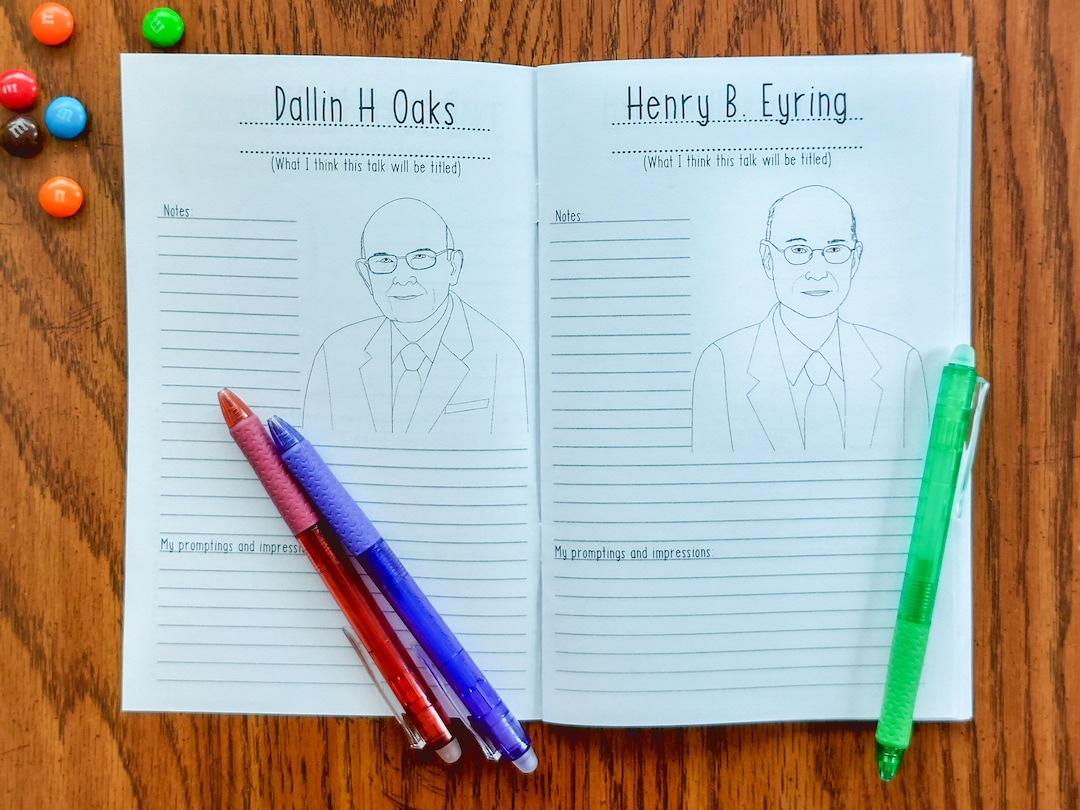 Dallin H Oaks
(What I think this talk will be titled)
Notes:
My promptings and
Henry B. Eyring
(What I think this talk will be titled)
Notes:
My promptings and impressions:
m
m
m
m
m
m